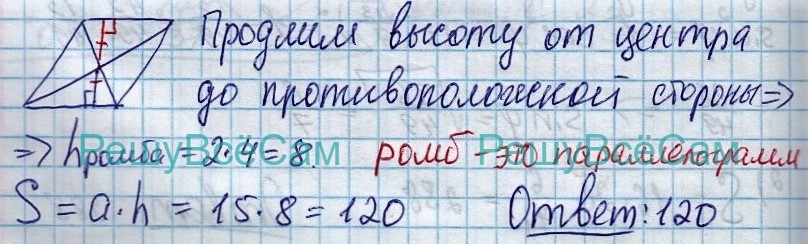 Продлим высоту от центра
до противоположной стороны =>
=> hромба = 2·4 = 8. ромб - это параллелограмм
РешуВсёСам РешуВсёСам
S = a·h = 15·8 = 120 Ответ: 120